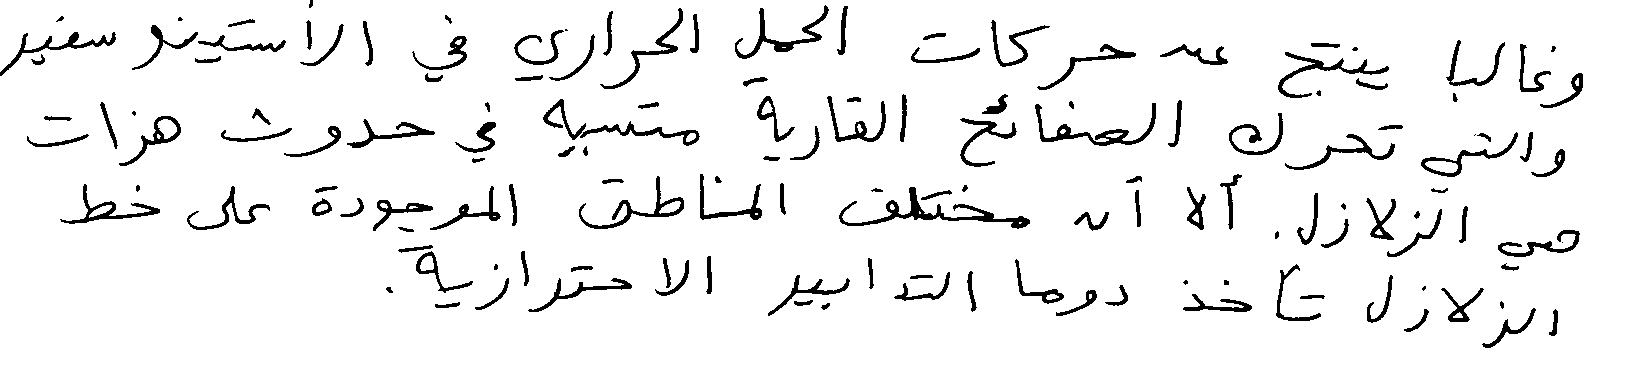 وغالبا ينتج عن حركات الحمل الحراري في الأستينوسفير
والتي تحرك الصفائح القارية متسببة في حدوث هزات
هي الزلازل. ألا أن مختلف المناطق الموجودة على خط
الزلازل تأخذ دوما التدابير الاحترازية.